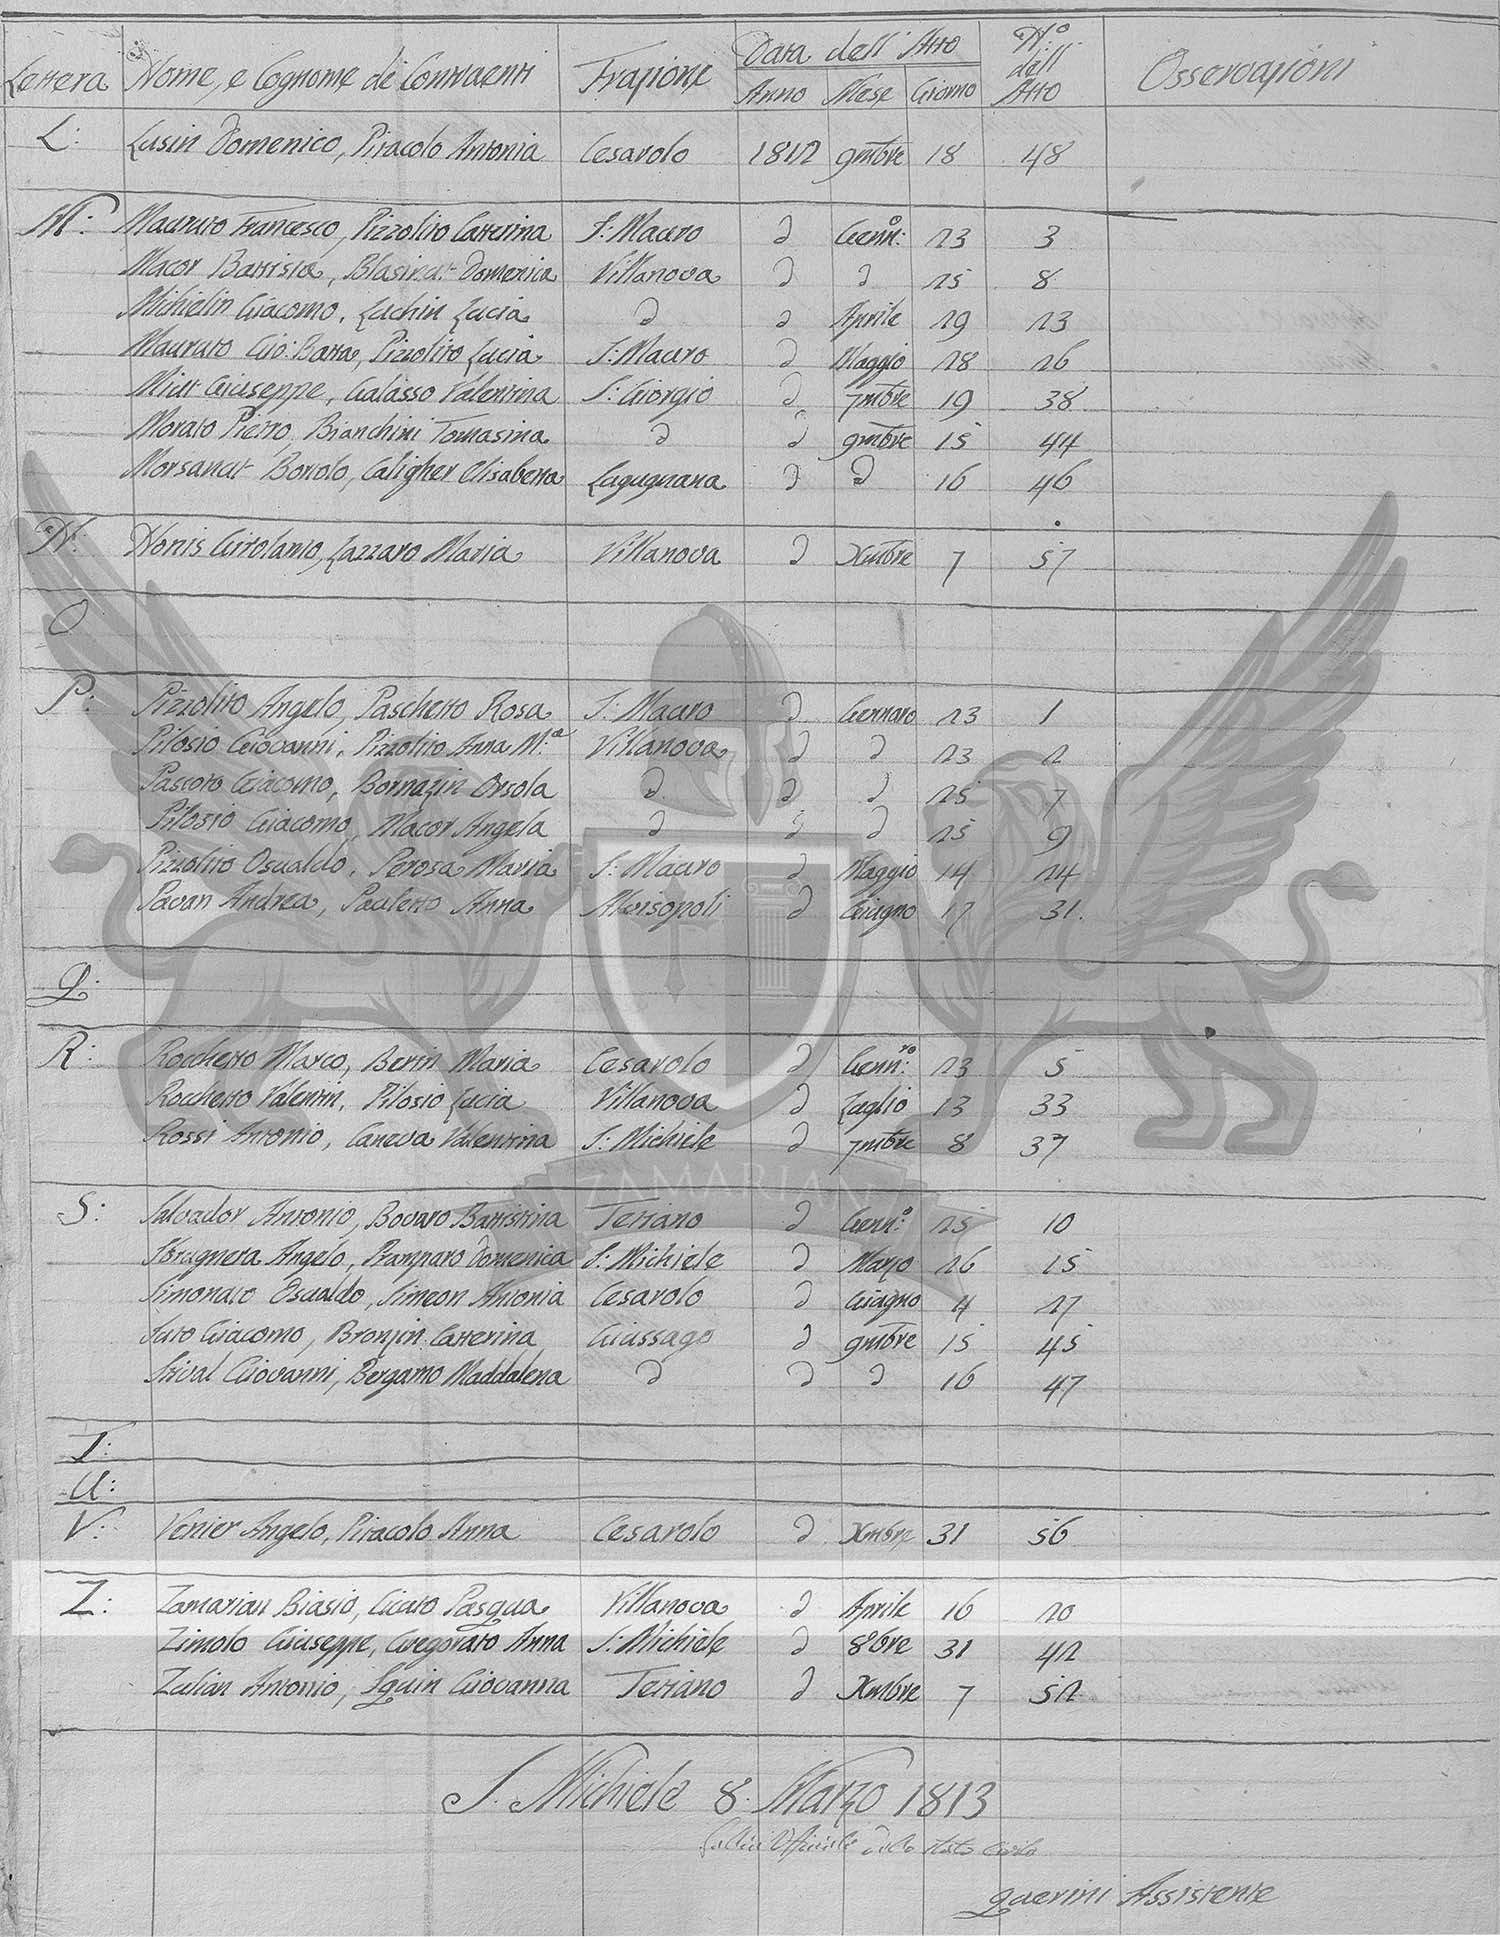 Lettera Nome, e Cognome de Contraenti Frazione Data dell'Atto Anno Mese Giorno N.º dell Atto Osservazioni
L: Lusin Domenico, Piracolo Antonia Cesarolo 1812 9mbre 18 48
M: Mauruto Francesco, Pizzolito Catterina S: Mauro d Genn:º 13 3
Macor Battista, Blasinat Domenica Villanova d d 15 8
Michielin Giacomo, Luchin Lucia d d Aprile 19 13
Mauruto Gio: Batta, Pizzolito Lucia S: Mauro d Maggio 18 26
Giuseppe, Galasso Valentina S: Giorgio d 7mbre 19 38
Morato Pietro, Bianchini Tomasina d d 9mbre 15 44
Morsanut Bortolo, Caligher Elisabetta Lugugnana d d 16 46
N: Nonis Girolamo, Lazzaro Maria Villanova d Xmbre 7 57
O
P: Pizzolito Angelo, Paschetto Rosa S: Mauro d Gennaro 13 1
Pilosio Giovanni, Pizzolito Anna M:ª Villanova d d 13 2
Giacomo, Bornazin Orsola d d d 15 7
Pilosio Giacomo, Macor Angela d d d 15 9
Pizzolito Osualdo, Perosa Maria S: Mauro d Maggio 14 24
Pavan Andrea, Pauletto Anna Alvisopoli d Giugno 17 31.
Q:
R: Rocchetto Marco, Bertin Maria Cesarolo d Genn:ro 13 5
Rocchetto Valentin, Pilosio Lucia Villanova d Luglio 13 33
Rossi Antonio, Caneva Valentina S: Michiele d 7mbre 8 37
ZAMARIAN
S: Salvador Antonio, Bovaro Battistina Teziano d Genn:º 15 10
Sbrugnera Angelo, Pramparo Domenica S: Michiele d Marzo 26 15
Simonato Osualdo, Simeon Antonia Cesarolo d Giugno 4 27
Suto Giacomo, Bronzin Catterina Giussago d 9mbre 15 45
Stival Giovanni, Bergamo Maddalena d d d 16 47
T:
U:
V: Venier Angelo, Piracolo Anna Cesarolo d Xmbre 31 56
Z: Zamarian Biasio, Cicuto Pasqua Villanova d Aprile 16 20
Zimolo Giuseppe, Gregorato Anna S: Michiele d 8bre 31 42
Zulian Antonio, Sguin Giovanna Teziano d Xmbre 7 52
S. Michiele 8. Marzo 1813
Stato Civile
Querini Assistente